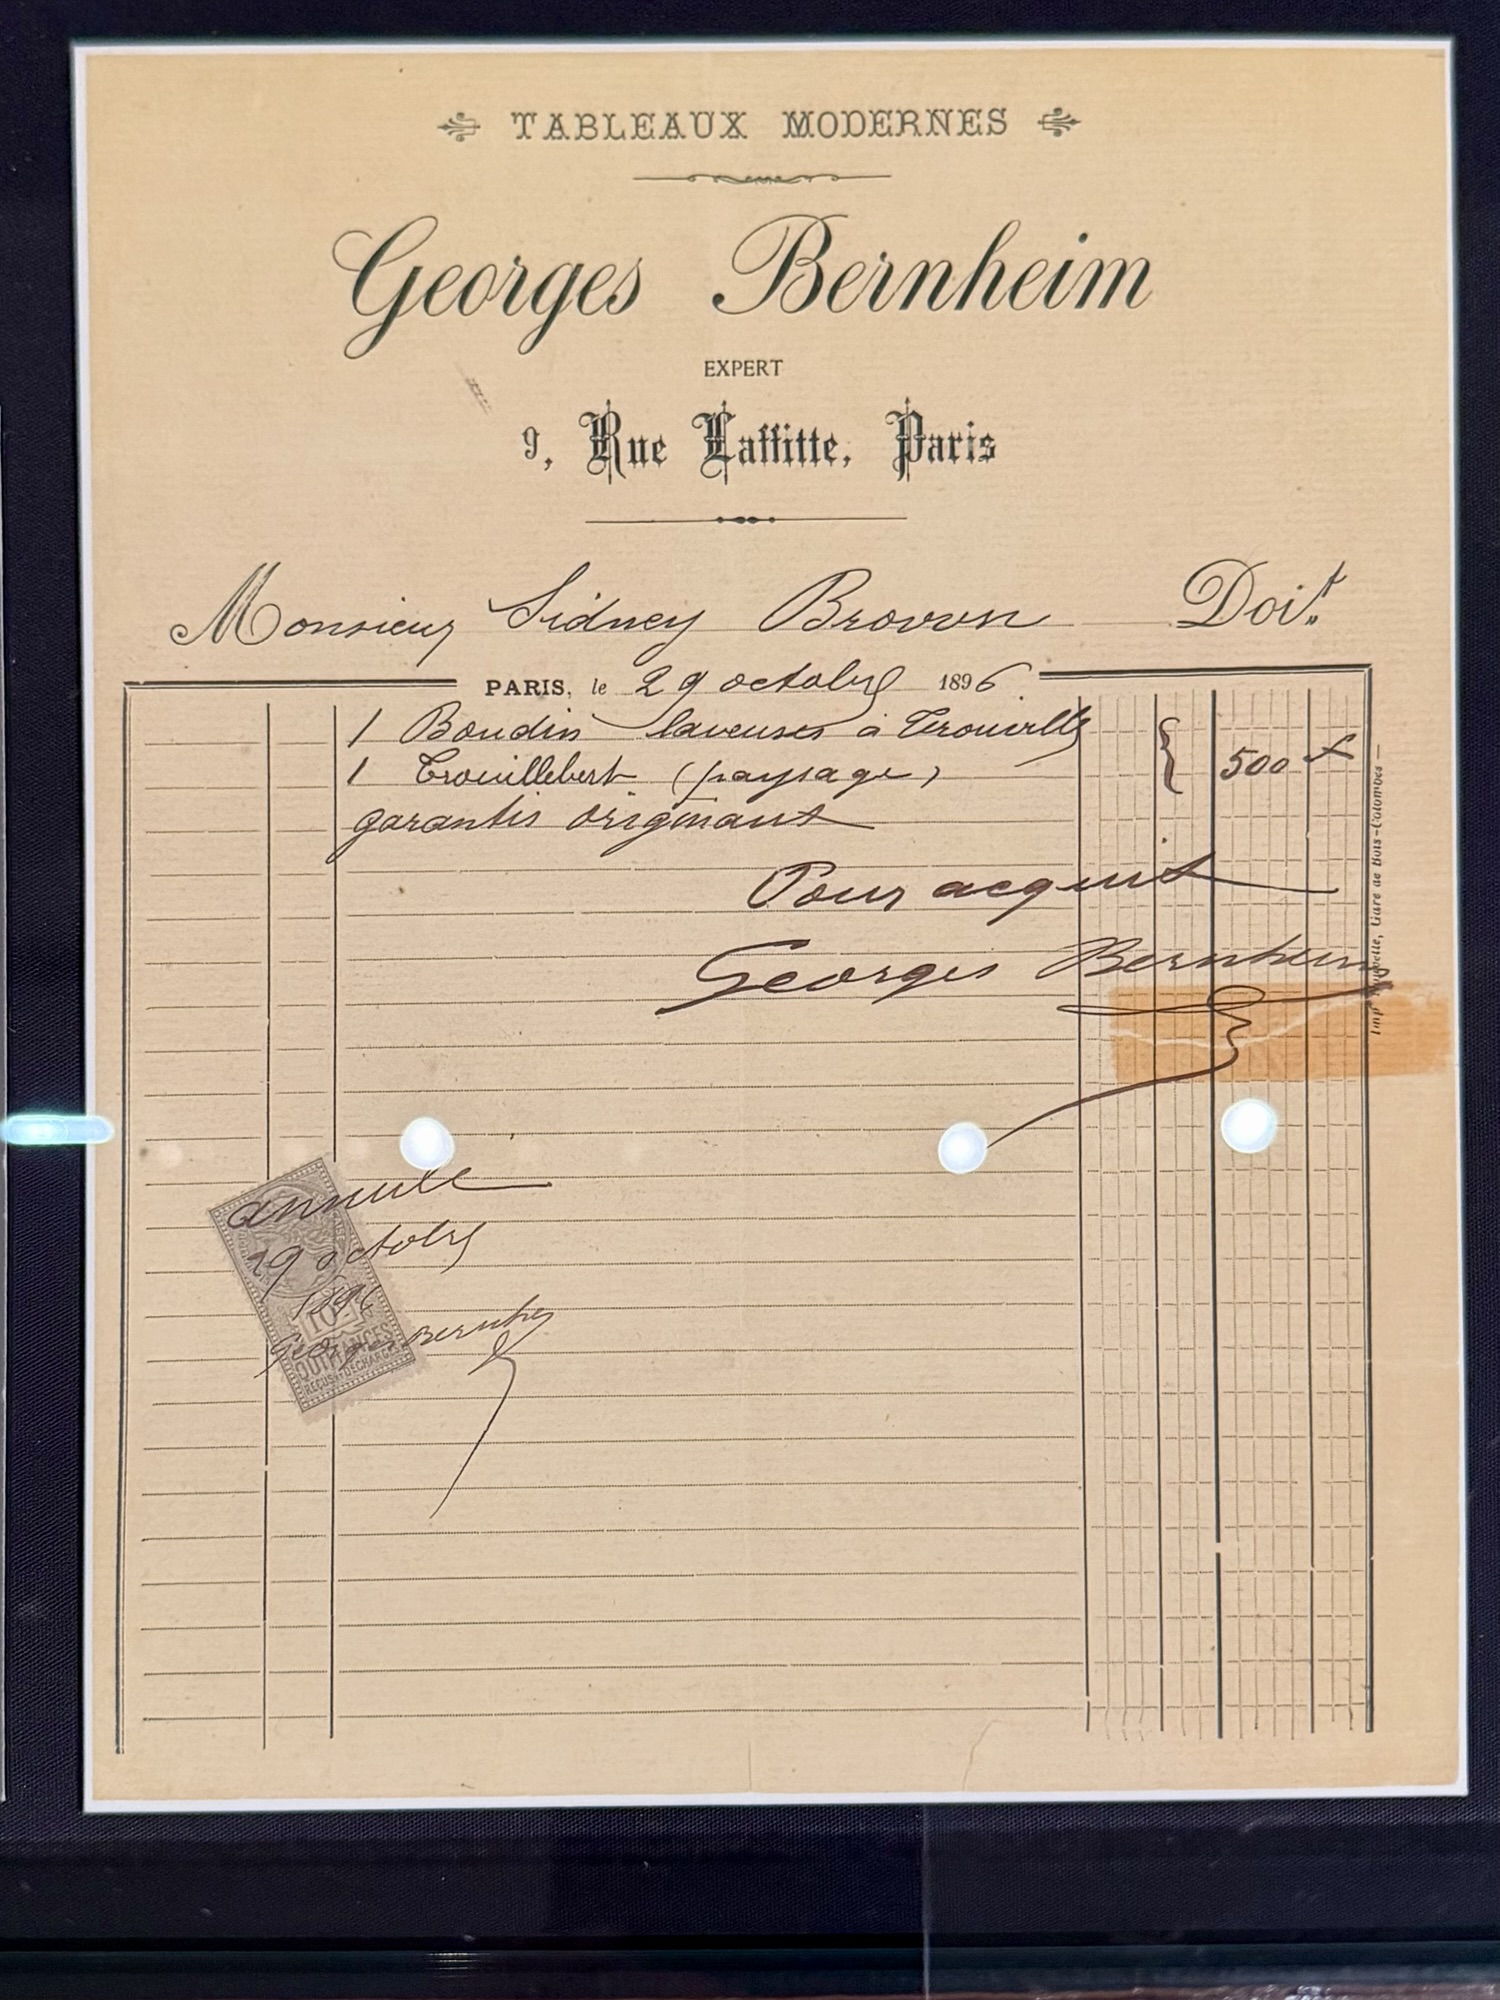 TABLEAUX MODERNES
Georges Bernheim
EXPERT
9, Rue Laffitte, Paris
Monsieur Sidney Brown Doit
PARIS, le 29 octobre 1896
1 Boudin laveuses à Trouville
1 Trouillebert (paysage)
500 f
garantis originaux
Pour acquit
Georges Bernheim
Gare de Bois-Colombes
annulé
29 octobre
1896
Georges Bernheim
10c
QUITTANCES
REÇUS ET DÉCHARGES